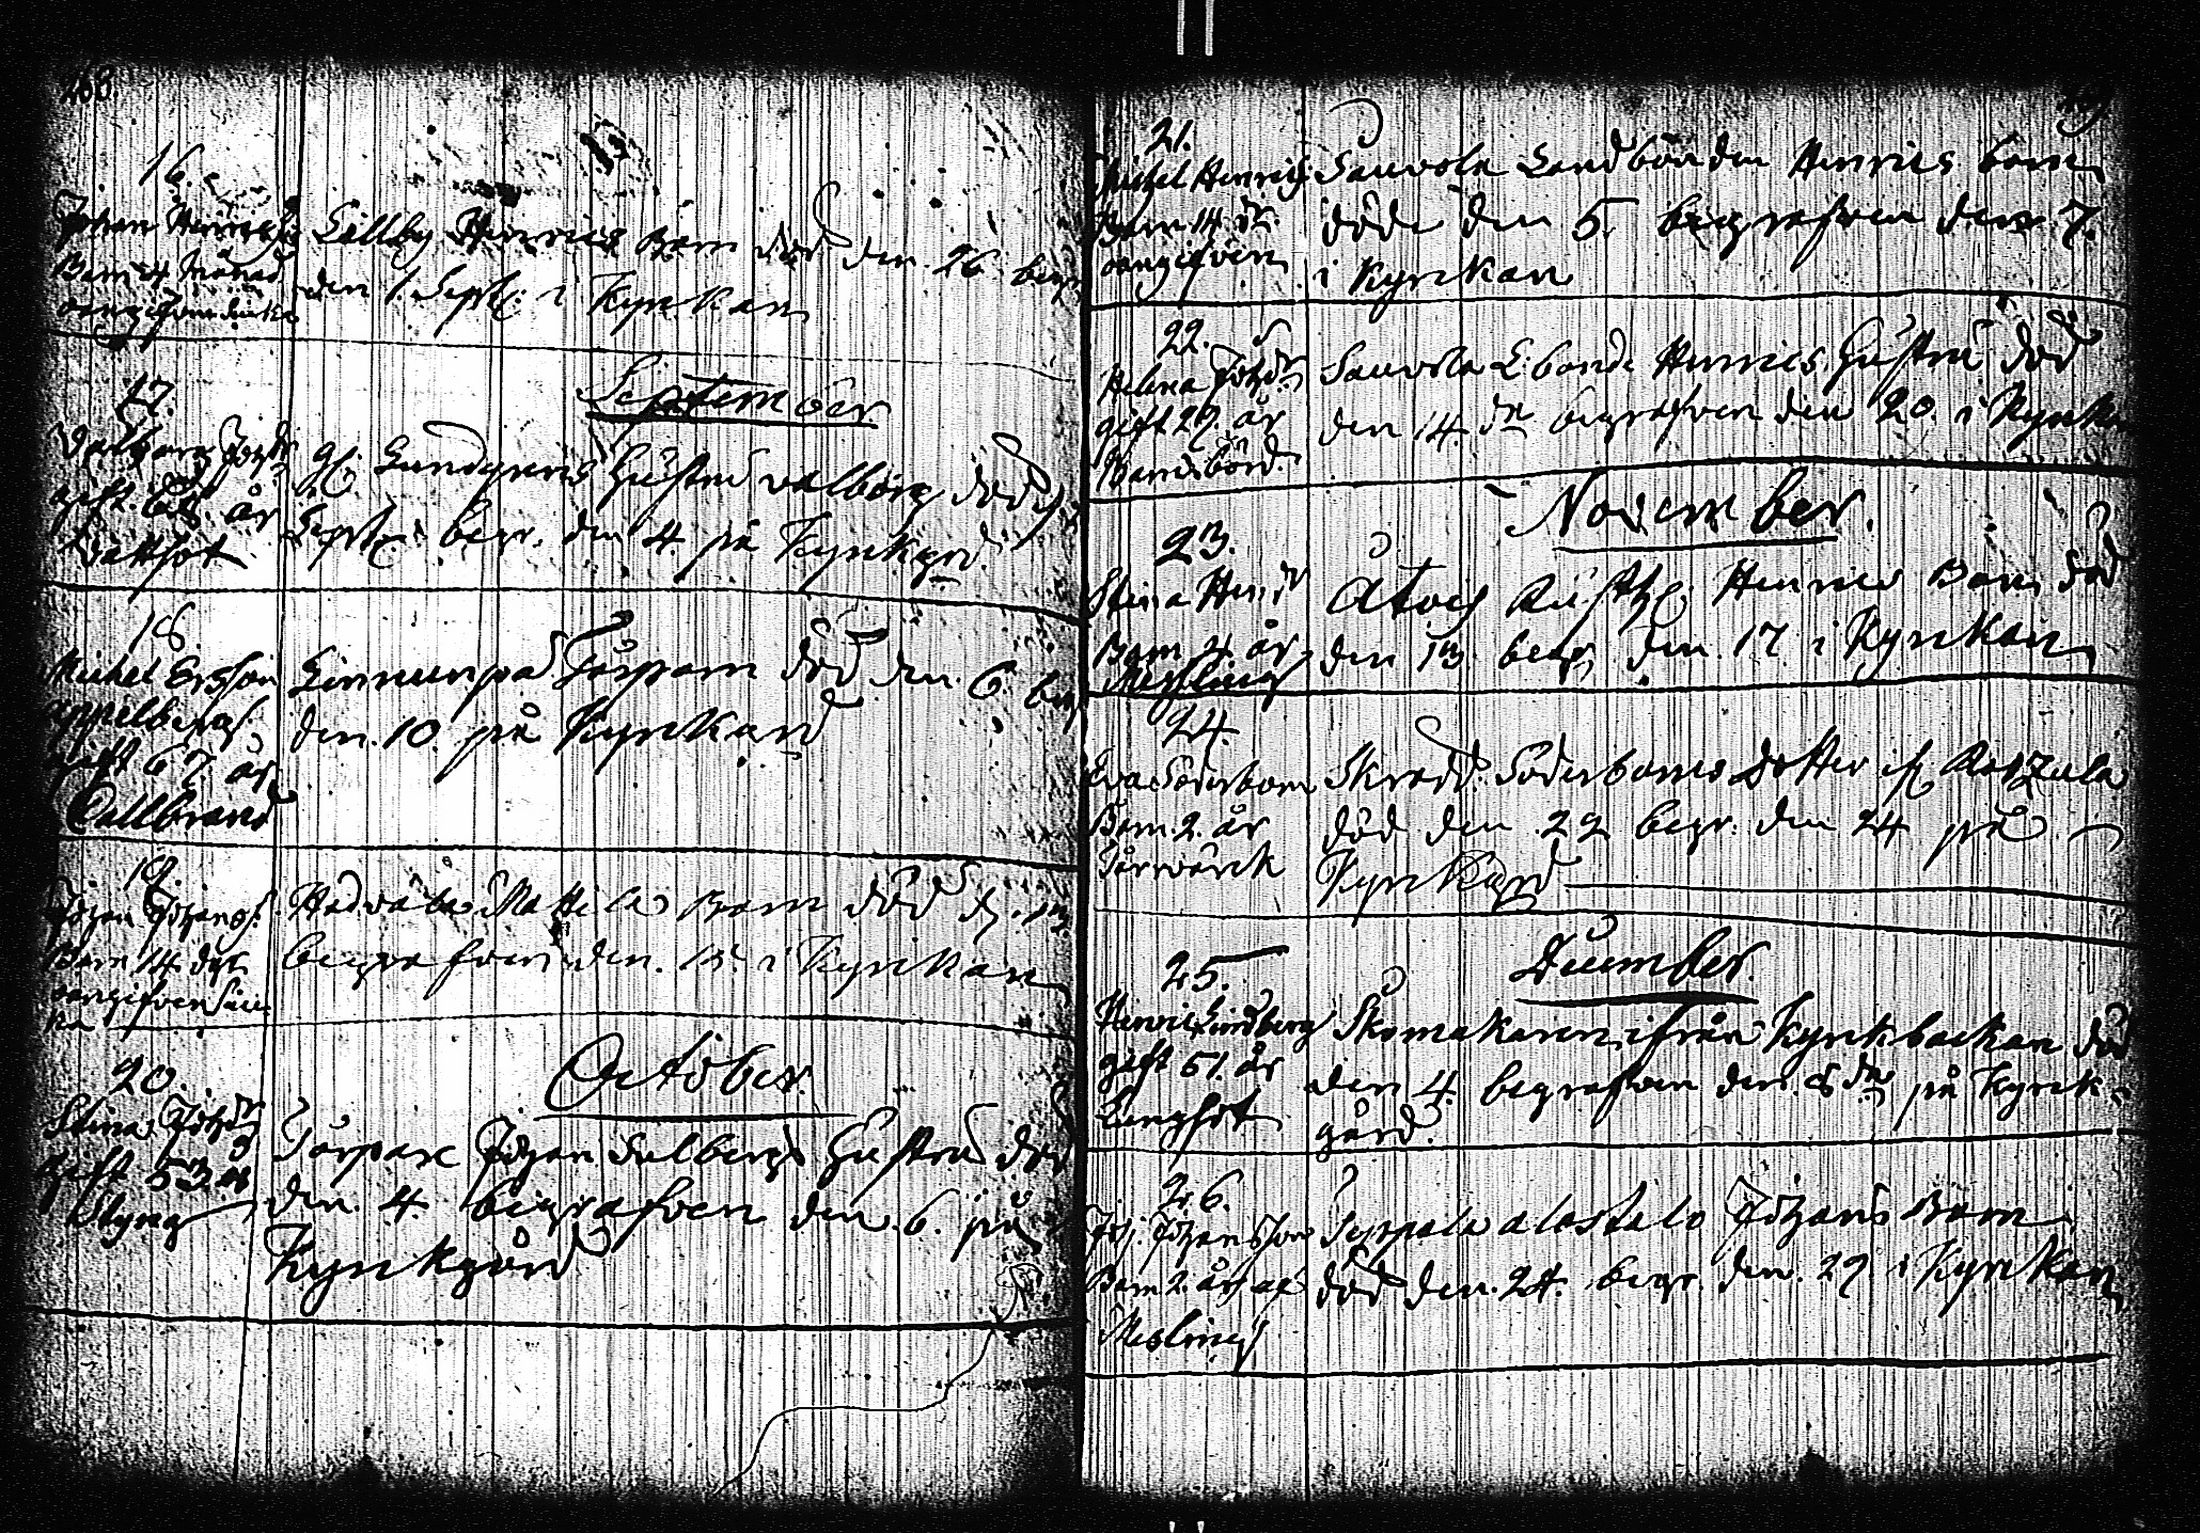 268.
16.
Johan Henrichs
Barn 4 månad
oangifven siuka
Lillby Henrics Barn död den 26. begr
den 1. Sept: i Kyrkan
September
17.
Valborg Joh:dr
gift år
Wattsot
Lundgrens Hustru Valborg död
Sept: begr. den 4. på Kyrkgrd.
18
Michel Ersson
Appelberg
gift 67. år
Kallbrand
Linnunpä Torparn död den 6. begr
den 10. på Kyrkgård
19.
Johan Johans S.
Barn 14 dgr
oangifven Siu
ka
Mattila Barn död d.
begrafven den. 15. i Kyrkan
October.
20.
Stina Joh:dr
gift 53 år
Styng
Torpare Johan Sulbergs Hustru död
den 4. begrafven den 6. på
Kyrkgård
21.
Michel Henrics
Barn 14 d.
oangifven
Sauvola Landbonden Henrics barn
döde den 5. begrafven den 7.
i Kyrkan
22.
Helena Joh:dr
gift 27. år
Barnsbörd.
Sauvola L:bonde Henrics Hustru död
den 14.de begrafven den 20. i Kyrkan
November.
23.
Stina Hen:dr
Barn 4 år
Messling
Atoch Rusth: Henrics Barn död
den 13 begr den. 17. i Kyrkan
24.
Eva Söderbom
Barn. 2. år
Torrvärk
Skredd. Söderboms dotter if.
död den 22 begr: den 24 på
Kyrkgård
December.
25.
Henric Lindberg
gift 51. år
Lungsot
Skomakaren ifrån Kyrkbackan död
den 4. begrafven den 8 de på Kyrk-
gård.
26.
Joh. Johansson
Barn 2. år af
Mesling
Seppälä alastalo Johans Barn
död den. 24. begr. den. 27 i Kyrkan